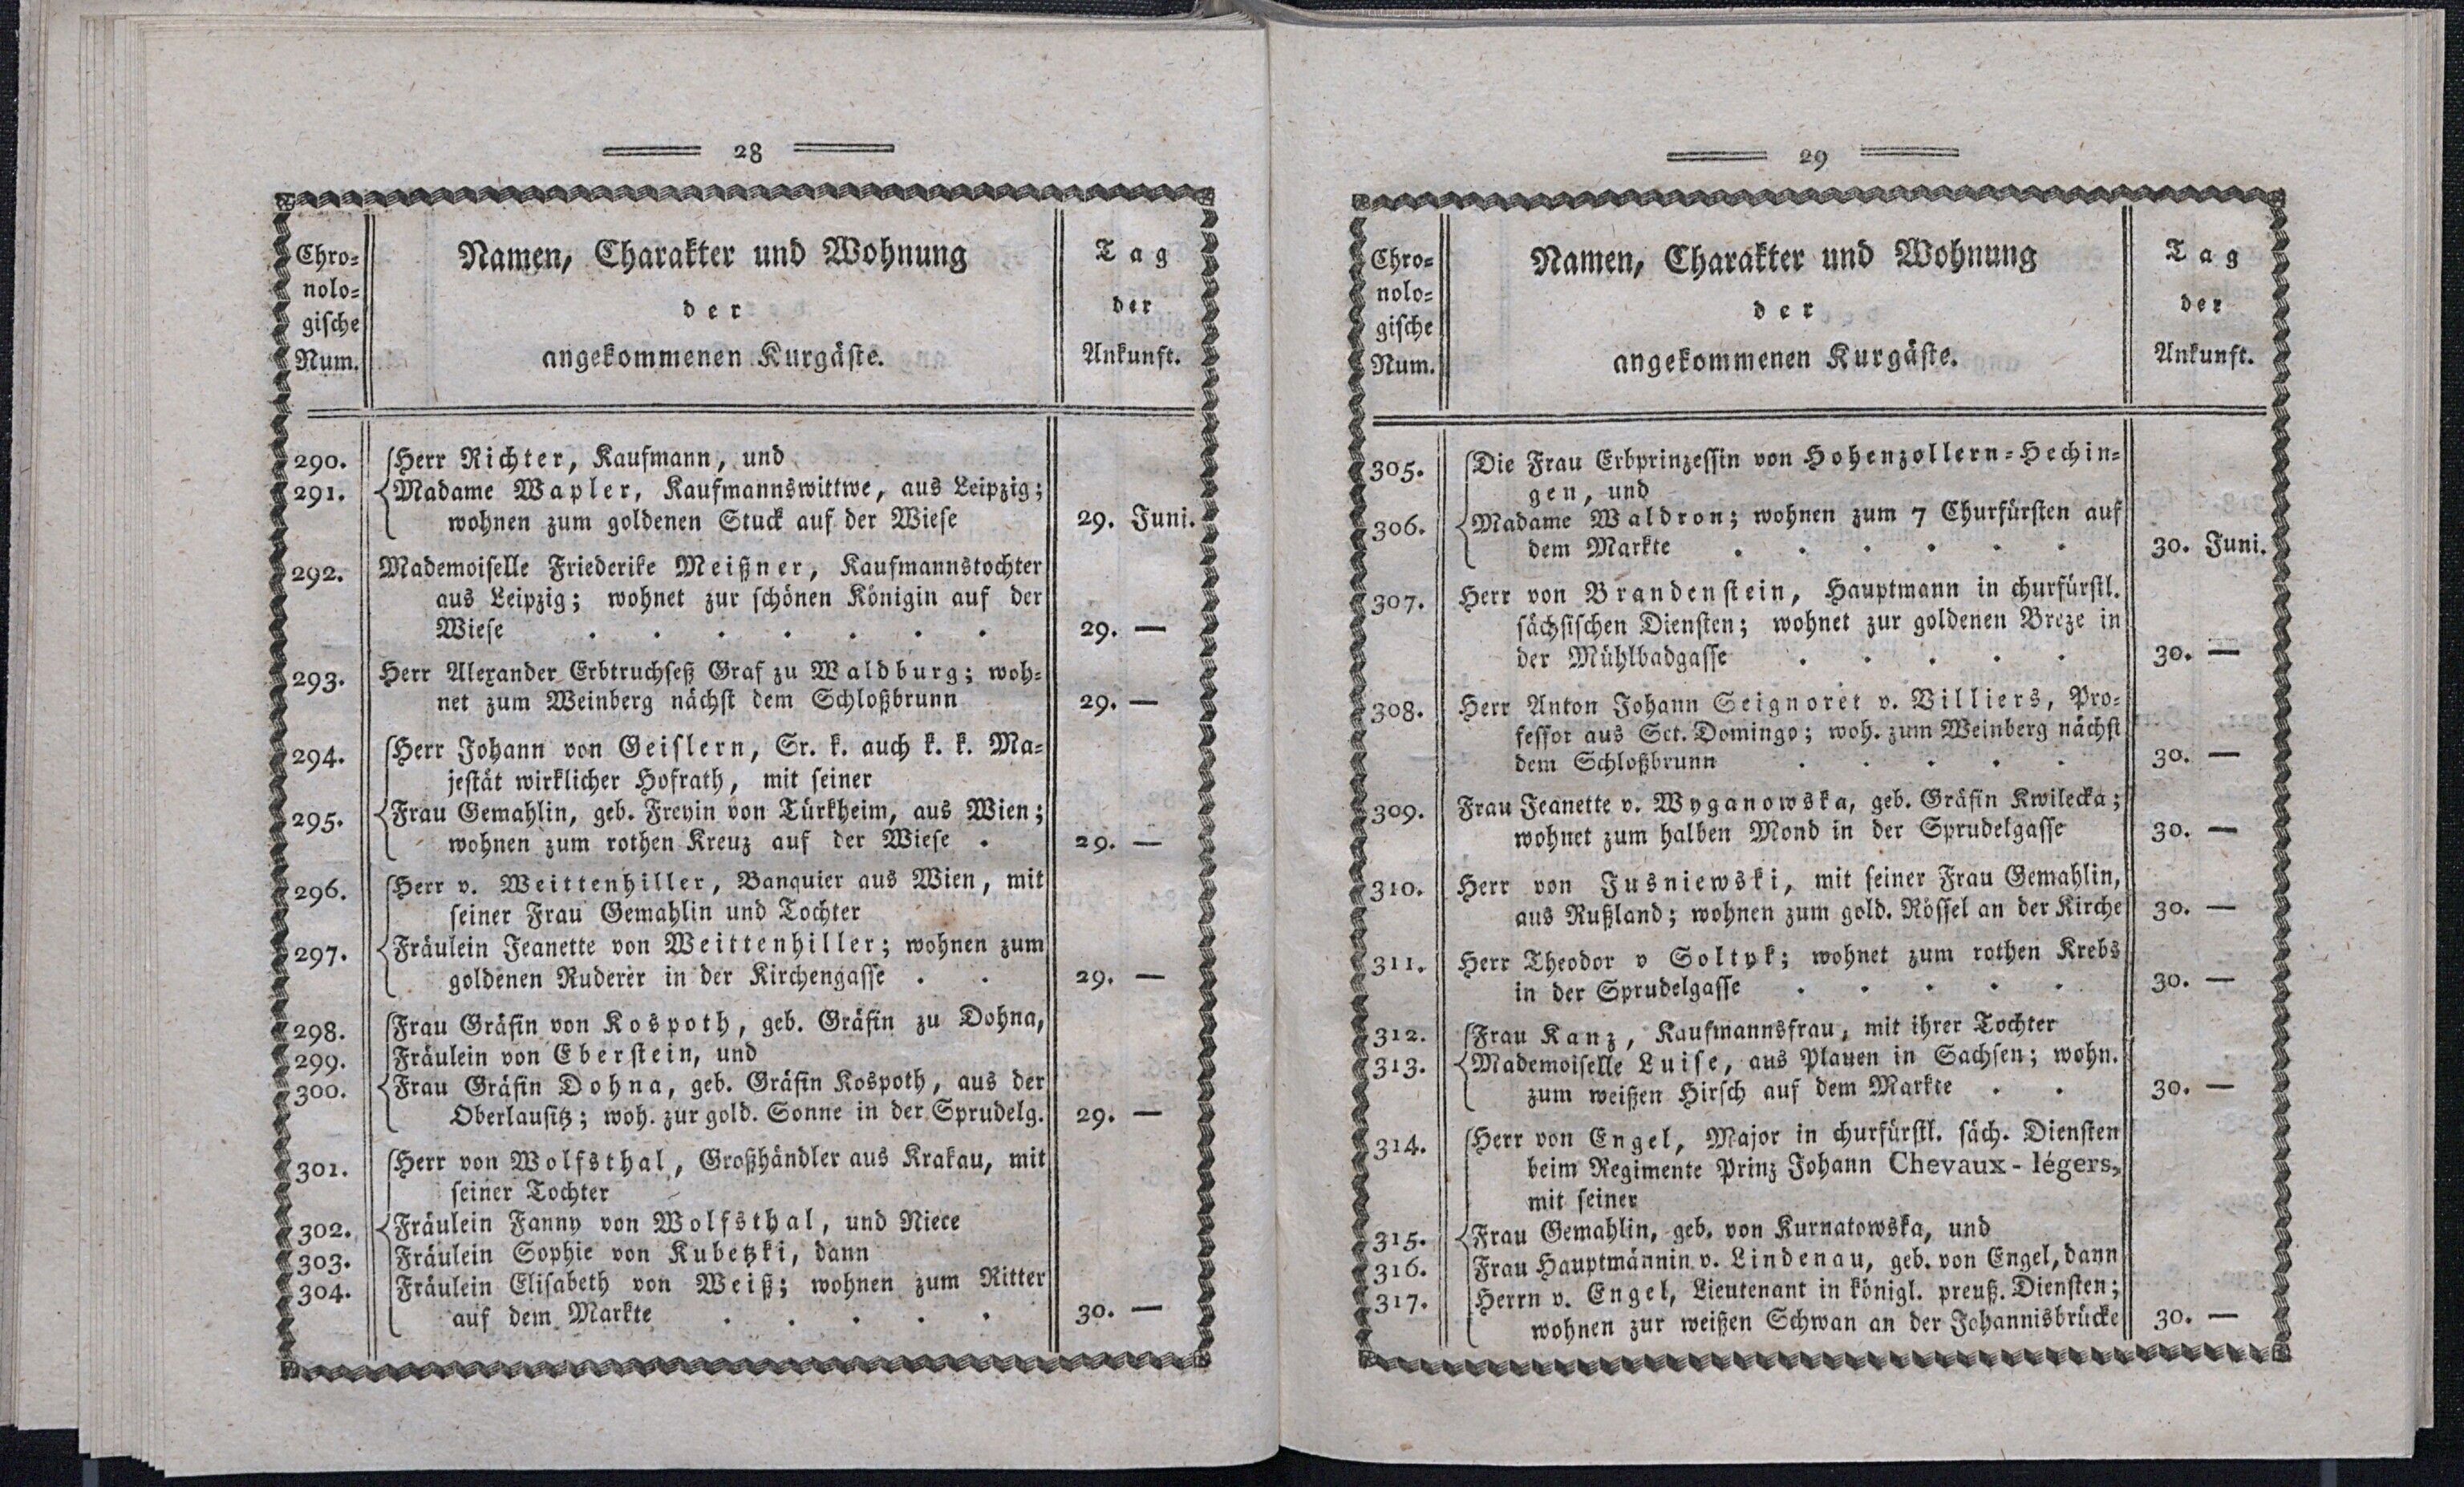 28
Chro-
nolo-
gische
Num.
Namen, Charakter und Wohnung
der
angekommenen Kurgäste.
Tag
der
Ankunft.
290. Herr Richter, Kaufmann, und
291. Madame Wapler, Kaufmannswittwe, aus Leipzig;
wohnen zum goldenen Stuck auf der Wiese 29. Juni.
292. Mademoiselle Friederike Meißner, Kaufmannstochter
aus Leipzig; wohnet zur schönen Königin auf der
Wiese . . . . . . . 29. —
293. Herr Alexander Erbtruchseß Graf zu Waldburg; woh-
net zum Weinberg nächst dem Schloßbrunn 29. —
294. Herr Johann von Geislern, Sr. k. auch k. k. Ma-
jestät wirklicher Hofrath, mit seiner
295. Frau Gemahlin, geb. Freyin von Türkheim, aus Wien;
wohnen zum rothen Kreuz auf der Wiese . 29. —
296. Herr v. Weittenhiller, Banquier aus Wien, mit
seiner Frau Gemahlin und Tochter
297. Fräulein Jeanette von Weittenhiller; wohnen zum
goldenen Ruderer in der Kirchengasse . . 29. —
298. Frau Gräfin von Kospoth, geb. Gräfin zu Dohna,
299. Fräulein von Eberstein, und
300. Frau Gräfin Dohna, geb. Gräfin Kospoth, aus der
Oberlausitz; woh. zur gold. Sonne in der Sprudelg. 29. —
301. Herr von Wolfsthal, Großhändler aus Krakau, mit
seiner Tochter
302. Fräulein Fanny von Wolfsthal, und Niece
303. Fräulein Sophie von Kubetzki, dann
304. Fräulein Elisabeth von Weiß; wohnen zum Ritter
auf dem Markte . . . . . 30. —
29
Chro-
nolo-
gische
Num.
Namen, Charakter und Wohnung
der
angekommenen Kurgäste.
Tag
der
Ankunft.
305. Die Frau Erbprinzessin von Hohenzollern-Hechin-
gen, und
306. Madame Waldron; wohnen zum 7 Churfürsten auf
dem Markte . . . . . . 30. Juni.
307. Herr von Brandenstein, Hauptmann in churfürstl.
sächsischen Diensten; wohnet zur goldenen Breze in
der Mühlbadgasse . . . . . 30. —
308. Herr Anton Johann Seignoret v. Villiers, Pro-
fessor aus Sct. Domingo; woh. zum Weinberg nächst
dem Schloßbrunn . . . . . 30. —
309. Frau Jeanette v. Wyganowska, geb. Gräfin Kwilecka;
wohnet zum halben Mond in der Sprudelgasse 30. —
310. Herr von Jusniewski, mit seiner Frau Gemahlin,
aus Rußland; wohnen zum gold. Rössel an der Kirche 30. —
311. Herr Theodor v Soltyk; wohnet zum rothen Krebs
in der Sprudelgasse . . . . . 30. —
312. Frau Kanz, Kaufmannsfrau, mit ihrer Tochter
313. Mademoiselle Luise, aus Plauen in Sachsen; wohn.
zum weißen Hirsch auf dem Markte . . 30. —
314. Herr von Engel, Major in churfürstl. säch. Diensten
beim Regimente Prinz Johann Chevaux-légers,
mit seiner
315. Frau Gemahlin, geb. von Kurnatowska, und
316. Frau Hauptmännin v. Lindenau, geb. von Engel, dann
317. Herrn v. Engel, Lieutenant in königl. preuß. Diensten;
wohnen zur weißen Schwan an der Johannisbrücke 30. —